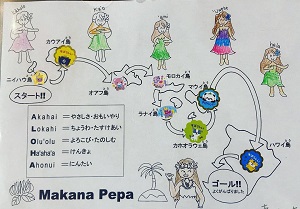 カウアイ島
ニイハウ島
スタート!!
オアフ島
モロカイ島
マウイ島
ラナイ島
カホオラウェ島
ハワイ島
Akahai =やさしさ・おもいやり
Lokahi =ちょうわ・たすけあい
Olu'olu =よろこび・たのしむ
Ha'aha'a =けんきょ
Ahonui =にんたい
ゴール!!
よくがんばりました
Makana Pepa